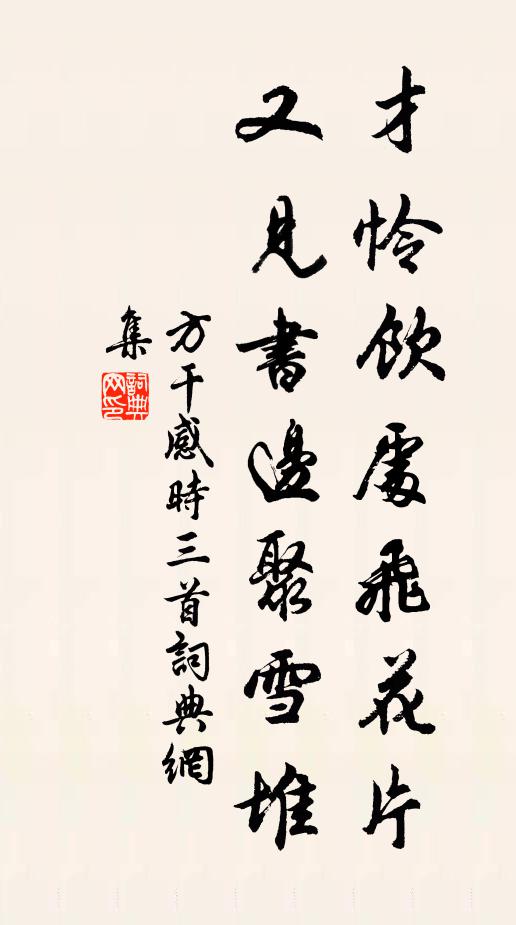 才怜飲處飛花片
又見書邊聚雪堆
方干感時三首詞典網
集
詞典
网印